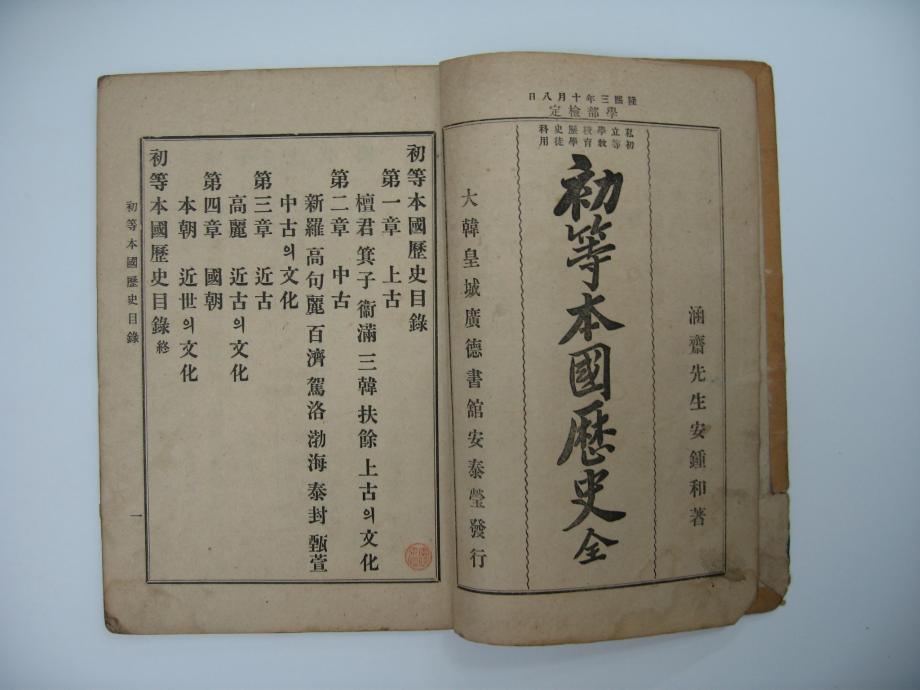 隆熙三年十月八日
學部檢定
私立學校歷史科
初等敎育學徒用
涵齋先生安鍾和著
初等本國歷史全
大韓皇城廣德書館安泰瑩發行
初等本國歷史目錄
第一章 上古
檀君 箕子 衞滿 三韓 扶餘 上古의文化
第二章 中古
新羅 高句麗 百濟 駕洛 渤海 泰封 甄萱
中古의文化
第三章 近古
高麗 近古의文化
第四章 國朝
本朝 近世의文化
初等本國歷史目錄 終
初等本國歷史目錄
一